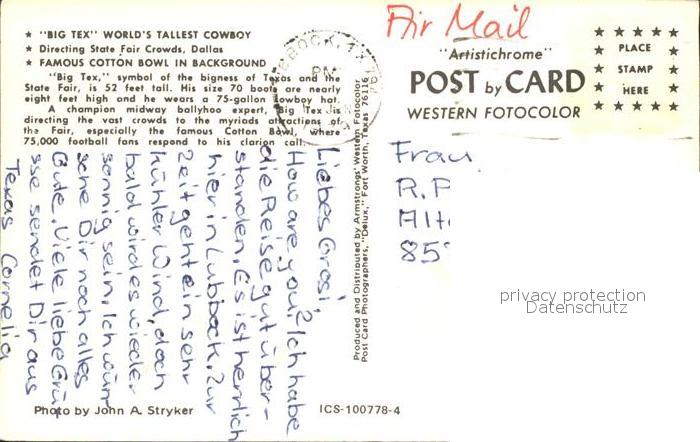 ★ "BIG TEX" WORLD'S TALLEST COWBOY
★ Directing State Fair Crowds, Dallas
★ FAMOUS COTTON BOWL IN BACKGROUND
"Big Tex," symbol of the bigness of Texas and the
State Fair, is 52 feet tall. His size 70 boots are nearly
eight feet high and he wears a 75-gallon cowboy hat.
A champion midway ballyhoo expert, Big Tex is
directing the vast crowds to the myriads attractions of
the Fair, especially the famous Cotton Bowl, where
75,000 football fans respond to his clarion call.
PM
Liebes Grosi,
How are you? Ich habe
die Reise gut über-
standen. Es ist herrlich
hier in Lubbock. Zur
Zeit geht ein sehr
kühler Wind, doch
bald wird es wieder
sonnig sein. Ich wün
sche Dir noch alles
Gute. Viele liebe Grü
sse sendet Dir aus
Texas Cornelia
Photo by John A. Stryker
ICS-100778-4
Produced and Distributed by Armstrongs' Western Fotocolor
Post Card Photographers, "Delux," Fort Worth, Texas 76116
Air Mail
"Artistichrome"
POST by CARD
WESTERN FOTOCOLOR
PLACE
STAMP
HERE
Frau
R. P
privacy protection
Datenschutz